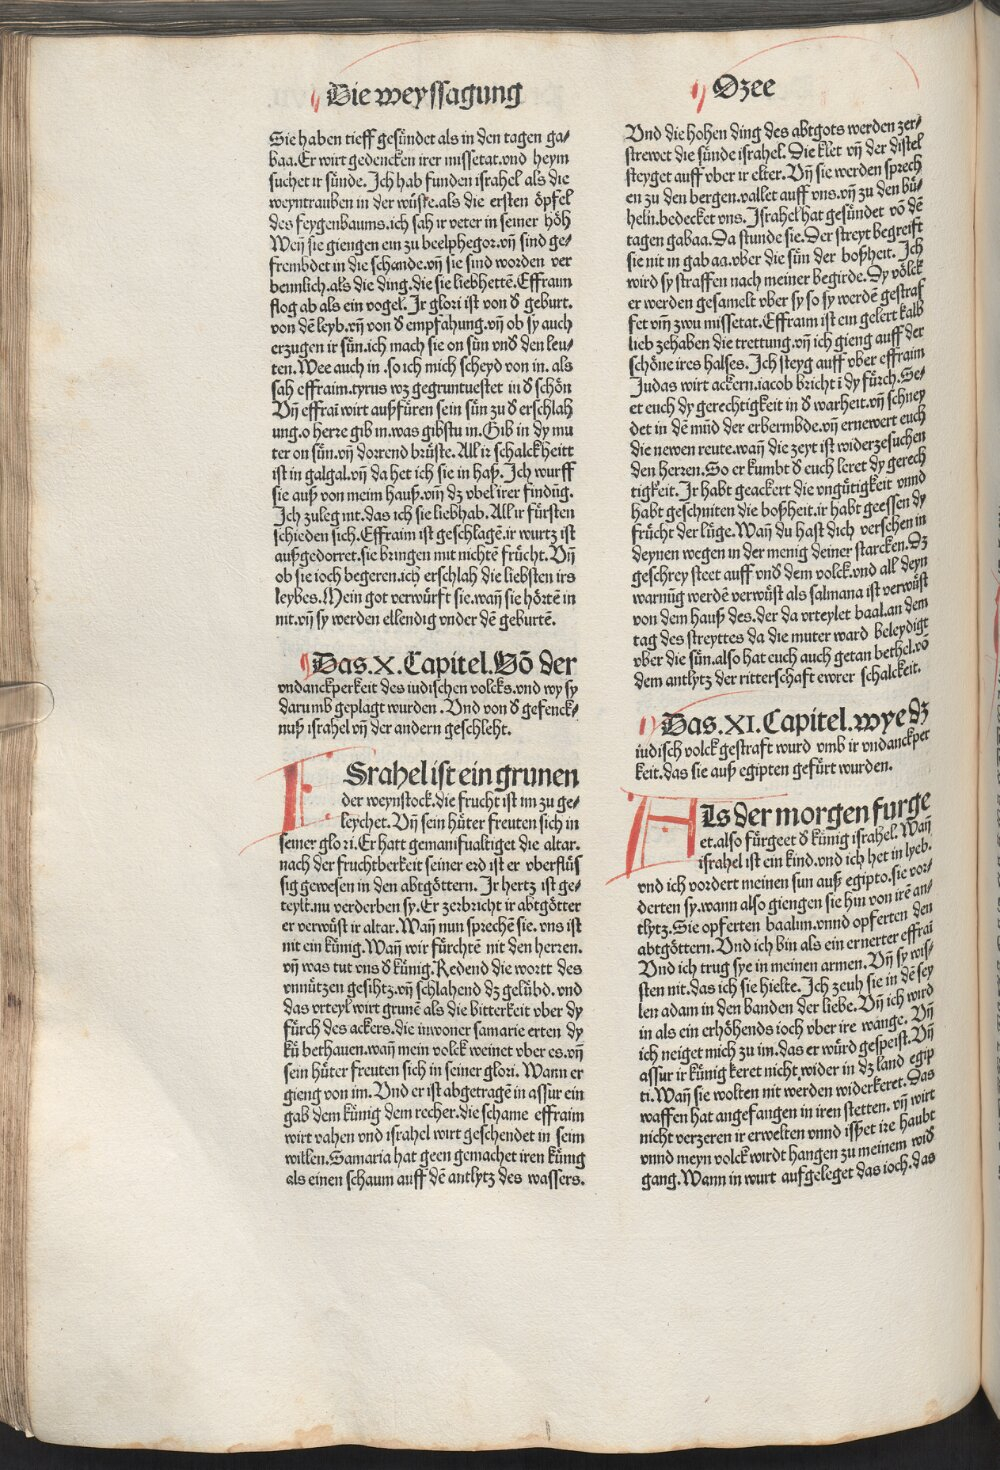 Die weyssagung
Ozee
Sie haben tieff gesündet als in den tagen ga⸗
baa.Er wirt gedencken irer missetat.vnd heym
suchet ir sünde. Ich hab funden israhel als die
weyntrauben in der wüste.als die ersten öpfel
des feygenbaums.ich sah ir veter in seiner höh
Weñ sie giengen ein zu beelphegor.vñ sind ge⸗
frembdet in die schande.vñ sie sind worden ver
bennlich.als die ding.die sie liebhettē.Effraum
flog ab als ein vogel. Ir glori ist von d geburt.
von dē leyb.vñ von d empfahung.vñ ob sy auch
erzugen ir sün.ich mach sie on sün vnd den leu⸗
ten.Wee auch in .so ich mich scheyd von in. als
sah effraim.tyrus wz gegruntuestet in d schön
Vñ effrai wirt außfüren sein sün zu d erschlah
ung.o herre gib in.was gibstu in.Gib in dy mu
ter on sün.vñ dorrend brüste. All ir schalckheitt
ist in galgal.vñ da het ich sie in haß. Ich wurff
sie auß von meim hauß.vm̄ dz vbel irer findūg.
Ich zuleg mt.das ich sie liebhab. All ir fürsten
schieden sich.Effraim ist geschlagē.ir wurtz ist
außgedorret.sie bringen mit nichtē frücht. Vñ
ob sie ioch begeren.ich erschlah die liebsten irs
leybes. Mein got verwürft sie.wañ sie hörtē in
nit.vñ sy werden ellendig vnder dē geburtē.
Das.X.Capitel.Võ der
vndanckperkeit des iudischen volcks.vnd wy sy
darumb geplagt wurden .Vnd von d gefenck⸗
nuß israhel vñ der andern geschleht.
ISrahel ist ein grunen
der weynstock.die frucht ist im zu ge⸗
leychet. Vñ sein hüter freuten sich in
seiner glori.Er hatt gemanifualtiget die altar.
nach der fruchtberkeit seiner erd ist er vberflüs
sig gewesen in den abtgöttern. Ir hertz ist ge⸗
teylt.nu verderben sy.Er zerbricht ir abtgötter
er verwüst ir altar. Wañ nun sprechē sie. vns ist
nit ein künig.Wañ wir fürchtē nit den herren.
vñ was tut vns d künig.Redend die wortt des
vnnützen gesihtz.vñ schlahend dz gelübd. vnd
das vrteyl wirt grunē als die bitterkeit vber dy
fürch des ackers.die inwoner samarie erten dy
kü bethauen.wañ mein volck weinet vber es.vñ
sein hüter freuten sich in seiner glori. Wann er
gieng von im.Vnd er ist abgetragē in assur ein
gab dem künig dem recher.die schame effraim
wirt vahen vnd israhel wirt geschendet in seim
willen.Samaria hat geen gemachet iren künig
als einen schaum auff dē antlytz des wassers.
Vnd die hohen ding des abtgots werden zer⸗
strewet die sünde israhel. Die klet vñ der distel
steyget auff vber ir elter. Vñ sie werden sprech
en zu den bergen.vallet auff vns.vñ zu den bü⸗
heln.bedecket vns. Israhel hat gesündet võ dē
tagen gabaa.Da stunde sie.Der streyt begreift
sie nit in gabaa.vber die sün der boßheit. Ich
wird sy straffen nach meiner begirde.Dy völck
er werden gesamelt vber sy so sy werdē gestraf
fet vm̄ zwu missetat.Effraim ist ein gelert kalb
lieb zehaben die trettung.vñ ich gieng auff der
schöne ires halses. Ich steyg auff vber effraim
Judas wirt ackern.iacob bricht i dy fürch.Se⸗
et euch dy gerechtigkeit in d warheit.vñ schney
det in dē mūd der erbermbde.vñ ernewert euch
die newen reute.wañ die zeyt ist widerzesuchen
den herren.So er kumbt d euch leret dy gerech
tigkeit. Ir habt geackert die vngütigkeit vnnd
habt geschniten die boßheit.ir habt geessen dy
frücht der lüge.Wañ du hast dich versehen in
deynen wegen in der menig deiner starcken.Dz
geschrey steet auff vnd dem volck.vnd all deyn
warnūg werdē verwüst als salmana ist verwüst
von dem hauß des.der da vrteylet baal.an dem
tag des streyttes da die muter ward beleydigt
vber die sün.also hat euch auch getan bethel.võ
dem antlytz der ritterschaft ewrer schalckeit.
Das.XI.Capitel.wye dz
iudisch volck gestraft wurd vmb ir vndanckper
keit.das sie auß egipten gefürt wurden.
Als der morgen furge
et.also fürgeet d künig israhel. Wañ
israhel ist ein kind.vnd ich het in lyeb.
vnd ich vordert meinen sun auß egipto.sie vor⸗
derten sy.wann also giengen sie hin von irē an⸗
tlytz.Sie opferten baalim.vnnd opferten den
abtgöttern.Vnd ich bin als ein ernerter effrai
Vnd ich trug sye in meinen armen. Vñ sy wis⸗
sten nit.das ich sie hielte. Ich zeuh sie in dē sey
len adam in den banden der liebe. Vñ ich wird
in als ein erhöhends ioch vber ire wange. Vñ
ich neiget mich zu im.das er würd gespeist.Vñ
assur ir künig keret nicht wider in dz land egip
ti.Wañ sie wolten nit werden widerkeret.Das
waffen hat angefangen in iren stetten. vñ wirt
nicht verzeren ir erwelten vnnd isset ire haubt
vnnd meyn volck wirdt hangen zu meinem wid
gang.Wann in wurt aufgeleget das ioch.das